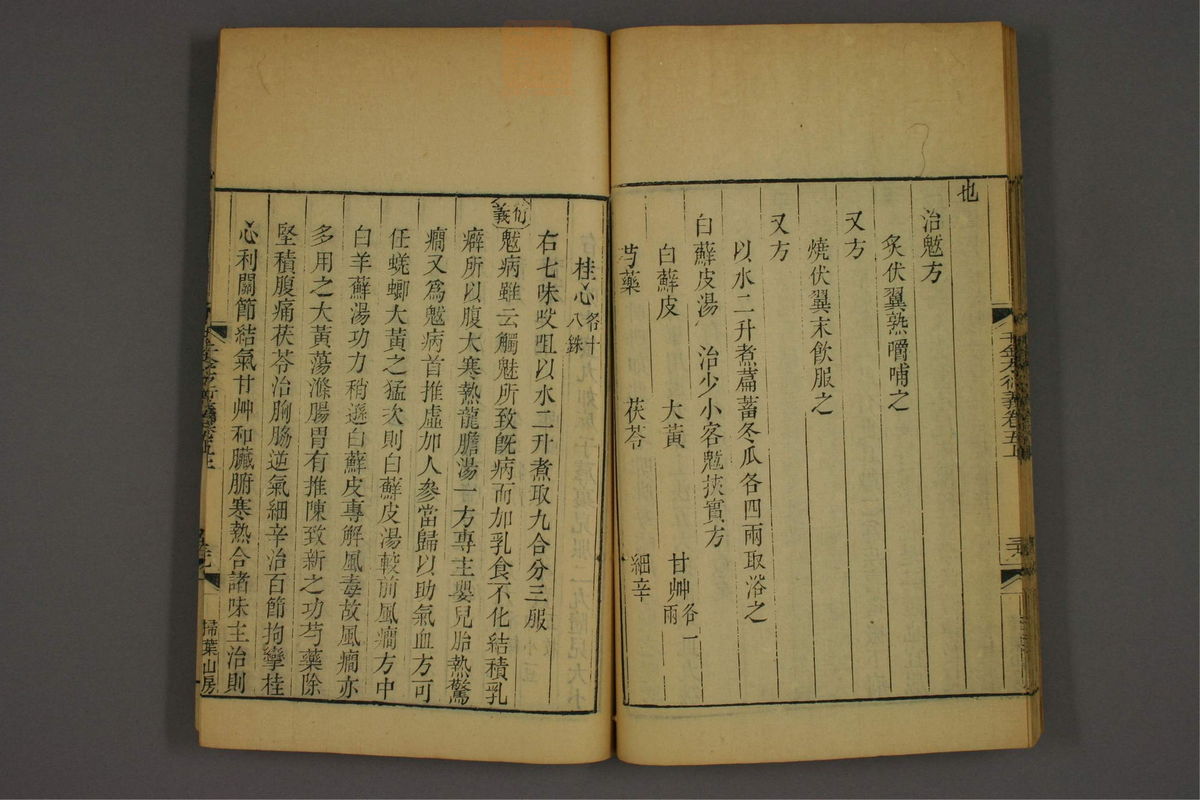 也
治魃方
炙伏翼熟嚼哺之
又方
燒伏翼末飲服之
又方
以水二升煮萹蓄冬瓜各四兩取浴之
白蘚皮湯 治少小客魃挾實方
白蘚皮 大黃 甘艸各一兩
芍藥 茯苓 細辛
桂心各十八銖
右七味㕮咀以水二升煮取九合分三服
衍義
魃病雖云觸魅所致旣病而加乳食不化結積乳
癖所以腹大寒熱龍膽湯一方專主嬰兒胎熱驚
癇又爲魃病首推虛加人參當歸以助氣血方可
任蜣蜋大黃之猛次則白蘚皮湯較前風癇方中
白羊蘚湯功力稍遜白蘚皮專解風毒故風癇亦
多用之大黃蕩滌腸胃有推陳致新之功芍藥除
堅積腹痛茯苓治胸脇逆氣細辛治百節拘攣桂
心利關節結氣甘艸和臟腑寒熱合諸味主治則
千金方衍義卷五上
掃葉山房